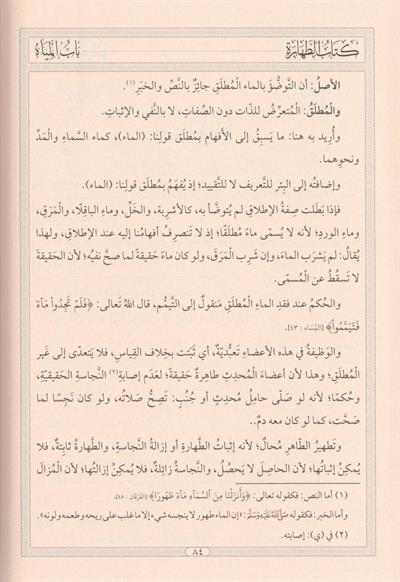 كتاب الطهارة
باب المياه
الأصلُ: أن التَّوضُّؤَ بالماء المُطلَقِ جائزٌ بالنَّصِّ والخبَرِ(١).
والمُطلَقُ: المُتعرِّضُ للذّات دون الصِّفاتِ، لا بالنَّفي والإثباتِ.
وأُرِيد به هنا: ما يَسبِقُ إلى الأفهامِ بمُطلَق قولِنا: (الماء)، كماء السَّماءِ والمَدِّ
ونحوِهما.
وإضافتُه إلى البِئر للتَّعريف لا للتَّقييد؛ إذ يُفهَمُ بمُطلَق قولِنا: (الماء).
فإذا بَطَلت صِفةُ الإطلاقِ لم يُتوضَّأ به، كالأشرِبةِ، والخَلِّ، وماءِ الباقِلَّا، والمَرَقِ،
وماءِ الوردِ؛ لأنه لا يُسمّى ماءً مُطلَقًا؛ إذ لا تَنصرِفُ أفهامُنا إليه عند الإطلاقِ، ولهذا
يُقالُ: لم يَشرَبِ الماءَ، وإن شَرِبَ المَرَقَ، ولو كان ماءً حَقيقةً لما صحَّ نفيُه؛ لأن الحَقيقةَ
لا تَسقُطُ عن المُسمّى.
والحُكمُ عند فقدِ الماءِ المُطلَقِ مَنقولٌ إلى التَّيمُّمِ، قال اللهُ تعالى: ﴿فَلَمْ تَجِدُواْ مَآءً
فَتَيَمَّمُواْ﴾ [النِّسَاء : ٤٣].
والوَظيفةُ في هذه الأعضاءِ تَعبُّديّةٌ، أي ثبَتت بخِلاف القِياسِ، فلا يَتعدّى إلى غَيرِ
المُطلَقِ؛ وهذا لأن أعضاءَ المُحدِثِ طاهِرةٌ حَقيقةً؛ لعَدَمِ إصابةِ(٢) النَّجاسةِ الحَقيقيّةِ،
وحُكمًا؛ لأنه لو صَلّى حامِلُ مُحدِثٍ أو جُنُبٍ: تَصِحُّ صَلاتُه، ولو كان نَجِسًا لما
صَحَّت، كما لو كان معه دمٌ..
وتَطهيرُ الطّاهرِ مُحالٌ؛ لأنه إثباتُ الطَّهارةِ أو إزالةُ النَّجاسةِ، والطَّهارةُ ثابِتةٌ، فلا
يُمكِنُ إثباتُها؛ لأن الحاصِلَ لا يَحصُلُ، والنَّجاسةُ زائِلةٌ، فلا يُمكِنُ إزالتُها؛ لأن المُزالَ
(١) أما النص: فكقوله تعالى: ﴿وَأَنزَلْنَا مِنَ ٱلسَّمَآءِ مَآءً طَهُورًا﴾ [الفُرقَان : ٤٨].
وأما الخبر: فكقوله ﷺ: «إن الماء طهور لا ينجسه شيء إلا ما غلب على ريحه وطعمه ولونه».
(٢) في (ي): إصابته.
٨٤